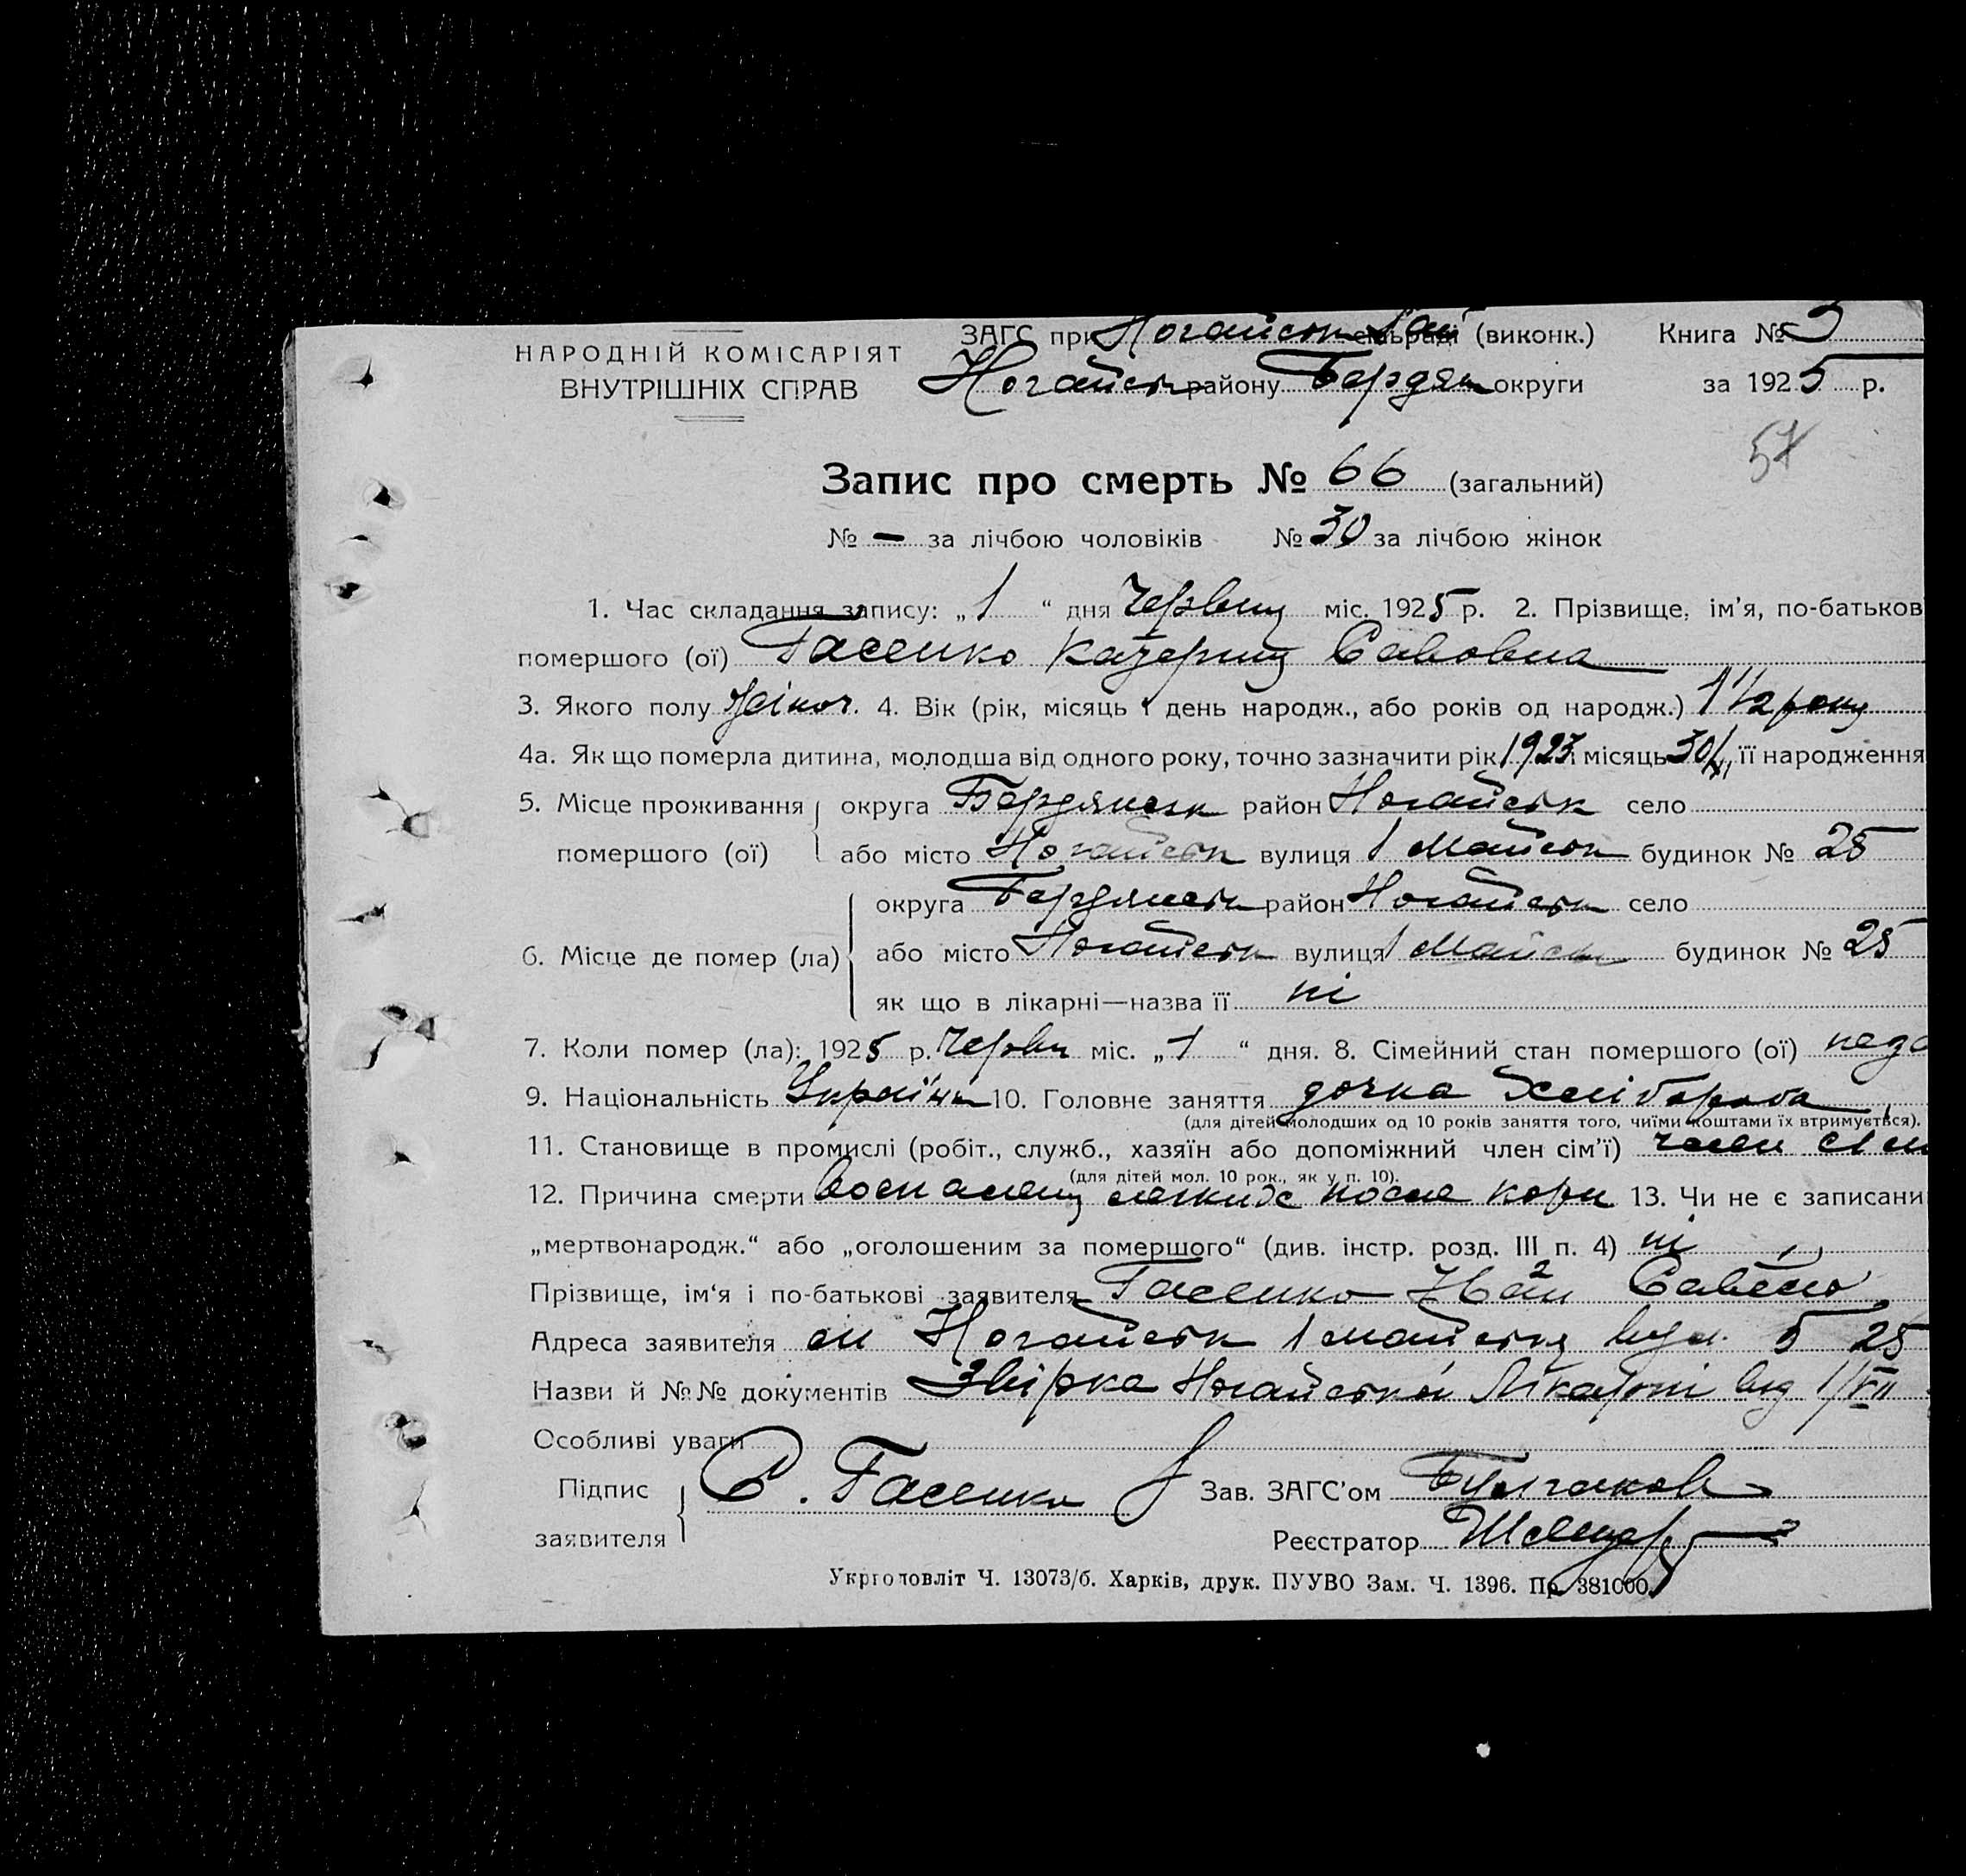 НАРОДНІЙ КОМІСАРІЯТ
ВНУТРІШНІХ СПРАВ
ЗАГС при Ногайськ (виконк.)
Ногайськ району Бердян округи
Книга №
за 1925 р.
57
Запис про смерть № 66 (загальний)
№ — за лічбою чоловіків № 30 за лічбою жінок
1. Час складання запису: „1“ дня Червня міс. 1925 р. 2. Прізвище, ім'я, по-батьков
помершого (ої) Гасенко Катерина Савовна
3. Якого полу жіноч. 4. Вік (рік, місяць і день народж., або років од народж.) 1 1/2 року
4а. Як що померла дитина, молодша від одного року, точно зазначити рік 1923 місяць 30/XI її народження
5. Місце проживання помершого (ої) округа Бердянськ район Ногайськ село
або місто Ногайськ вулиця 1 Майськ будинок № 25
6. Місце де помер (ла) округа Бердянськ район Ногайськ село
або місто Ногайськ вулиця 1 Майськ будинок № 25
як що в лікарні—назва її ні
7. Коли помер (ла): 1925 р. Червн міс. „1“ дня. 8. Сімейний стан помершого (ої)
9. Національність Україн 10. Головне заняття дочка Хлібороба
(для дітей молодших од 10 років заняття того, чиїми коштами їх втримується).
11. Становище в промислі (робіт., служб., хазяїн або допоміжний член сім'ї) член сім
(для дітей мол. 10 рок., як у п. 10).
12. Причина смерти легких после кори 13. Чи не є записани
„мертвонародж.“ або „оголошеним за помершого“ (див. інстр. розд. III п. 4) ні
Прізвище, ім'я і по-батькові заявителя Гасенко
Адреса заявителя м Ногайськ 1 майська вул. б 25
Назви й №№ документів Ногайської Лікарні від
Особливі уваги
Підпис заявителя С. Гасенко
Зав. ЗАГС'ом Булгаков
Реєстратор
Укрголовліт Ч. 13073/б. Харків, друк. ПУУВО Зам. Ч. 1396. Пр. 381000.